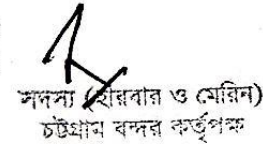 সদস্য (হারবার ও মেরিন)
চট্টগ্রাম বন্দর কর্তৃপক্ষ